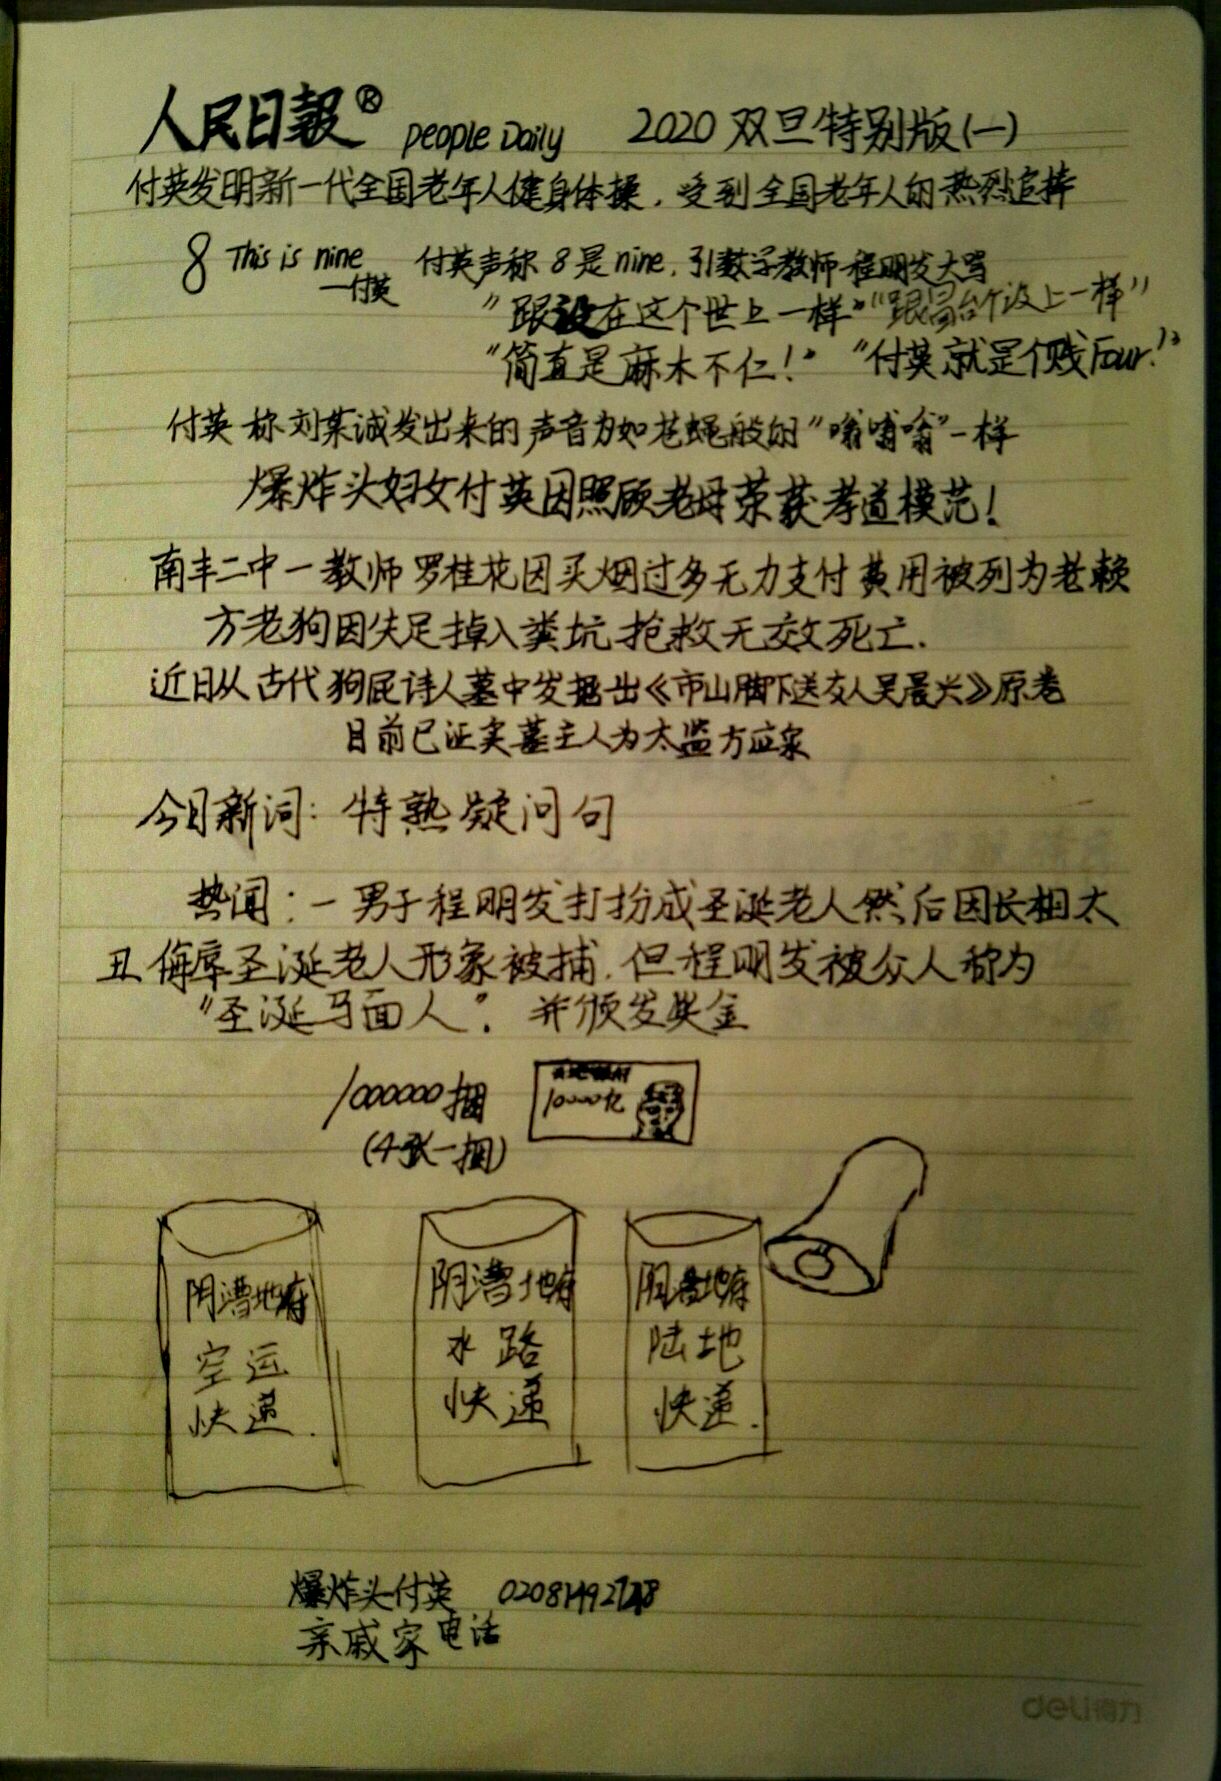 人民日報® people Daily 2020双旦特别版(一)
付英发明新一代全国老年人健身体操，受到全国老年人的热烈追捧
8 This is nine 付英声称8是nine，引数学教师程明发大骂
—付英
"跟没在这个世上一样" "跟冒台个没上一样"
"简直是麻木不仁！" "付英就是个贱Four！"
付英称刘某诚发出来的声音为如苍蝇般的"嗡嗡嗡"一样
爆炸头妇女付英因照顾老母荣获孝道模范！
南丰二中一教师罗桂花因买烟过多无力支付费用被列为老赖
方老狗因失足掉入粪坑抢救无效死亡.
近日从古代狗屁诗人墓中发掘出《市山脚下送友人吴晨兴》原卷
目前已证实墓主人为太监方应泉
今日新词：特熟疑问句
热闻：一男子程明发打扮成圣诞老人然后因长相太
丑侮辱圣诞老人形象被捕，但程明发被众人称为
"圣诞马面人"，并颁发奖金
1000000捆
(4张一捆)
10000亿
阴漕地府
空运
快递.
阴漕地府
水路
快递
阴漕地府
陆地
快递.
爆炸头付英
亲戚家电话
deli得力